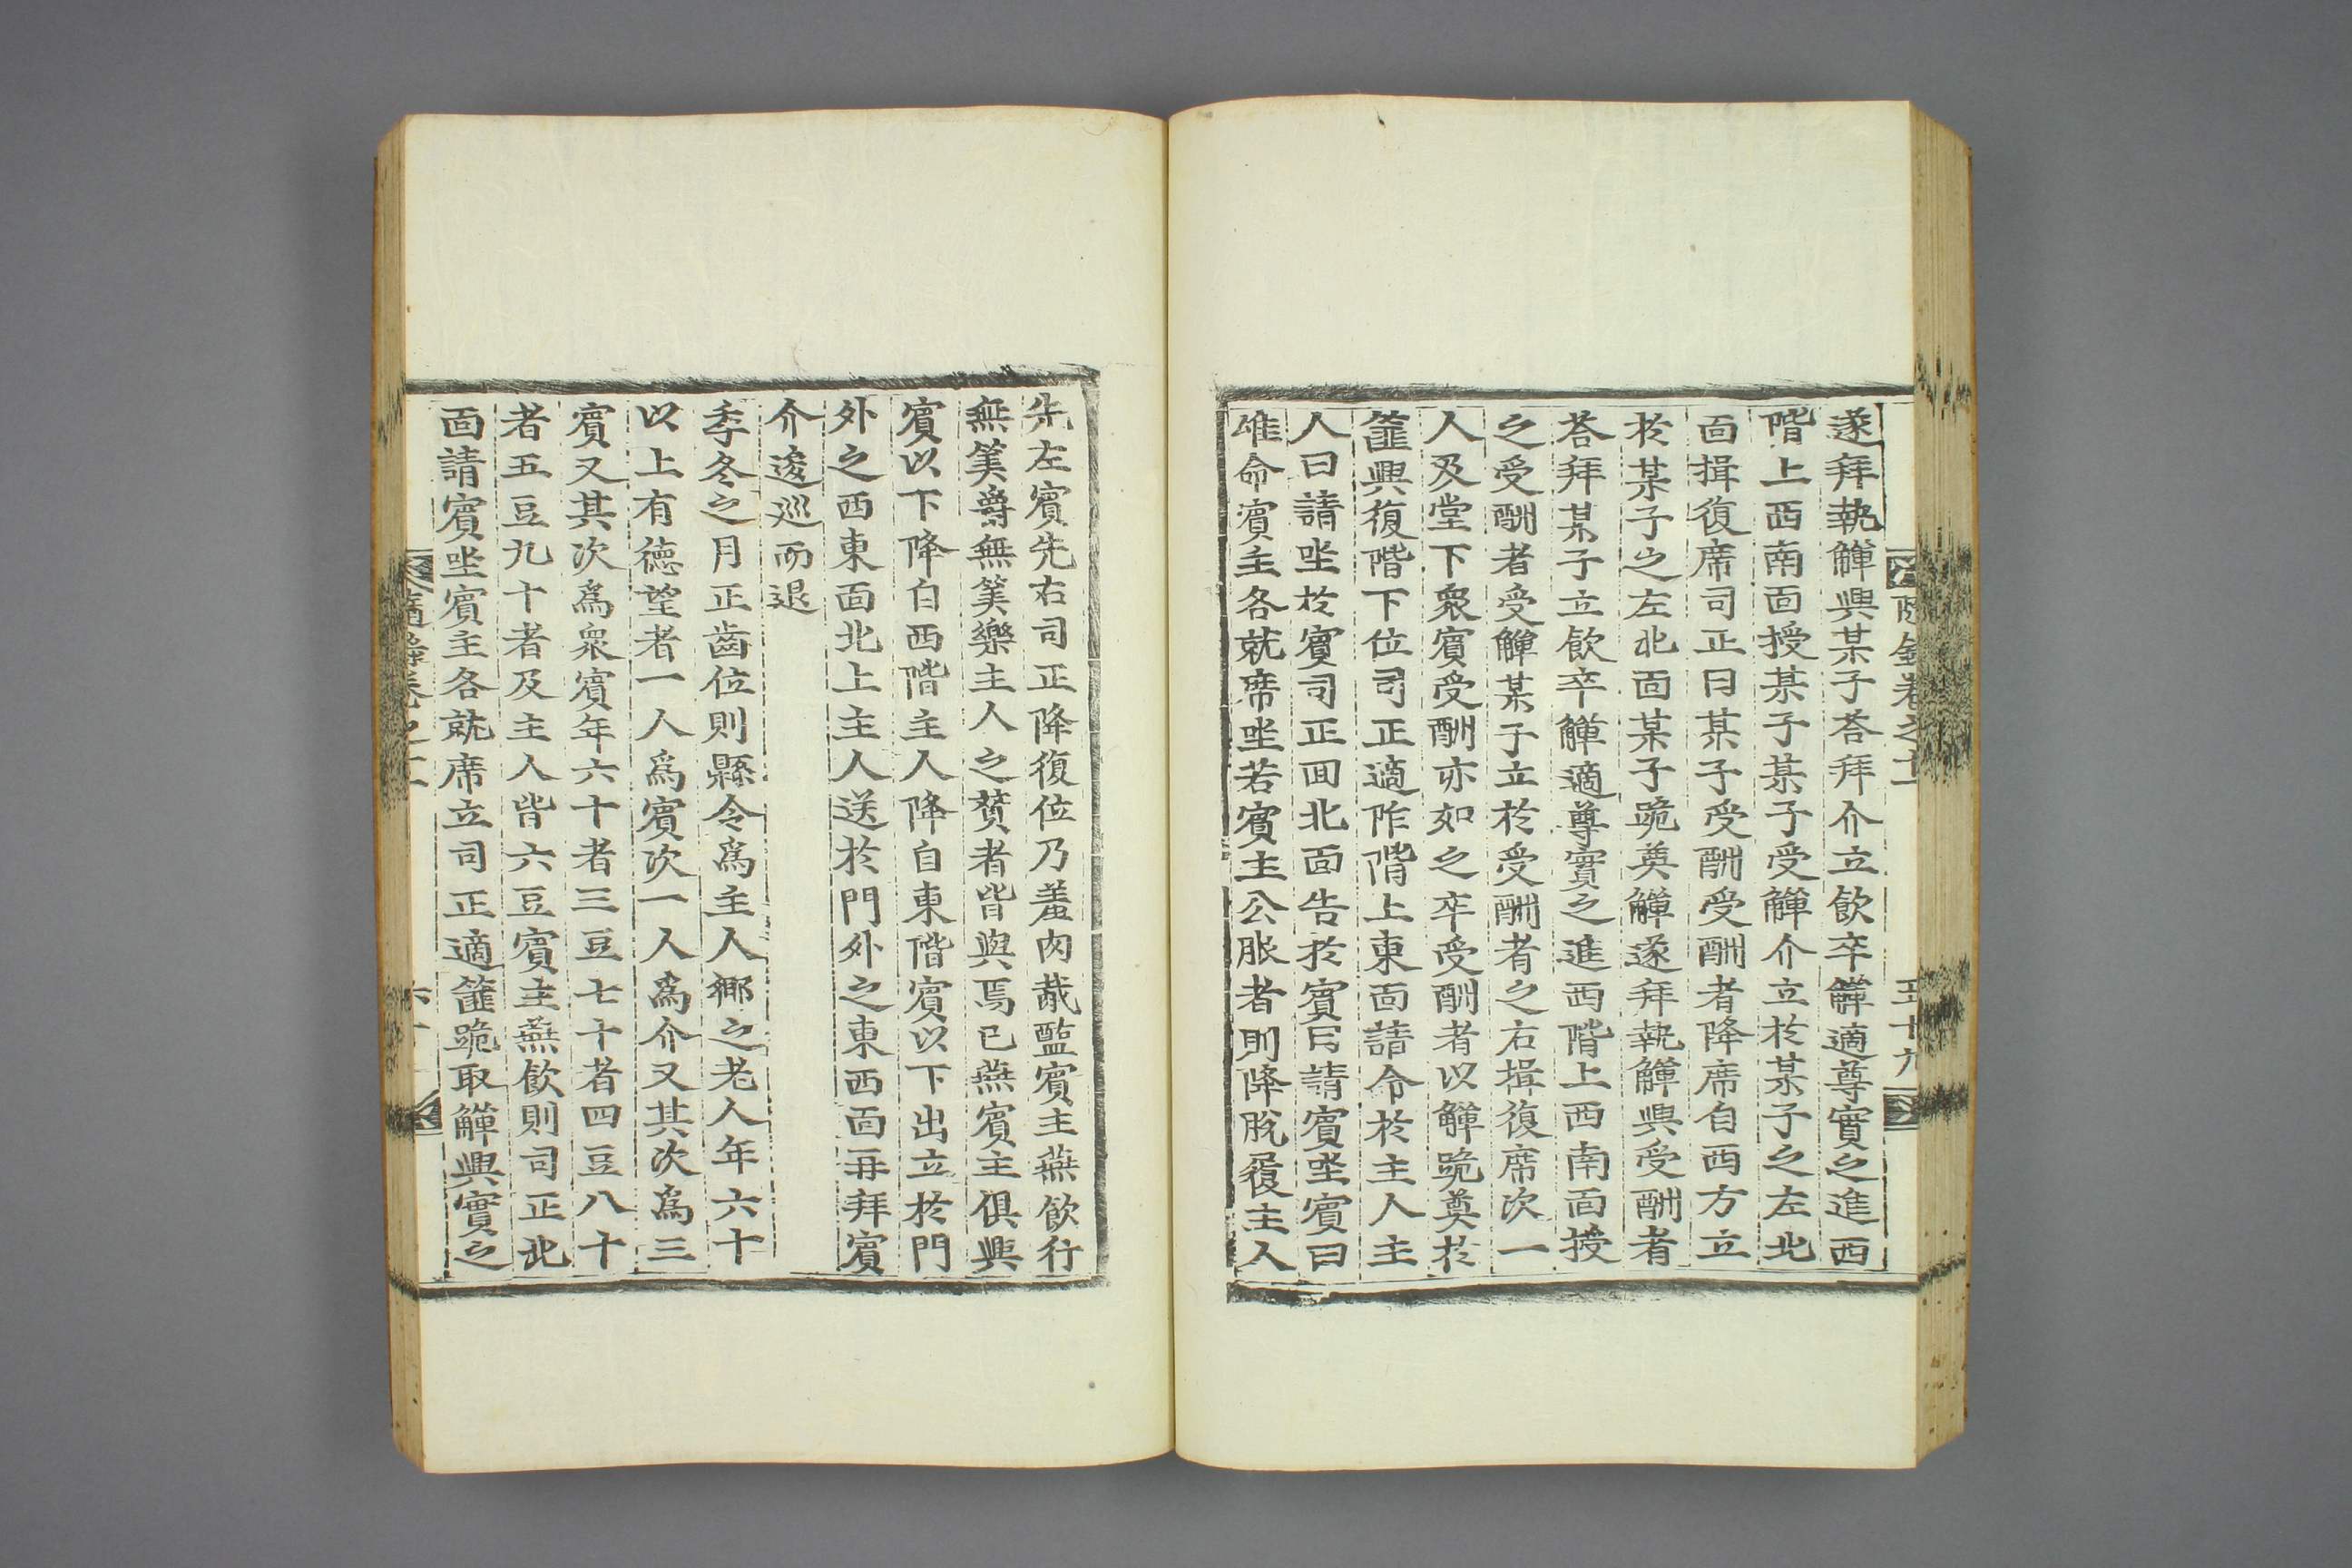 隨錄卷之十一
五十九
遂拜執觶興某子荅拜介立飲卒觶適尊實之進西
階上西南面授某子某子受觶介立於某子之左北
面揖復席司正曰某子受酬受酬者降席自西方立
於某子之左北面某子跪奠觶遂拜執觶興受酬者
荅拜某子立飲卒觶適尊實之進西階上西南面授
之受酬者受觶某子立於受酬者之右揖復席次一
人及堂下衆賓受酬亦如之卒受酬者以觶跪奠於
篚興復階下位司正適阼階上東面請命於主人主
人曰請坐於賓司正回北面告於賓曰請賓坐賓曰
唯命賓主各就席坐若賓主公服者則降脫履主人
先左賓先右司正降復位乃羞肉胾醢賓主燕飲行
無筭爵無筭樂主人之贊者皆與焉已燕賓主俱興
賓以下降自西階主人降自東階賓以下出立於門
外之西東面北上主人送於門外之東西面再拜賓
介逡巡而退
季冬之月正齒位則縣令爲主人鄉之老人年六十
以上有德望者一人爲賓次一人爲介又其次爲三
賓又其次爲衆賓年六十者三豆七十者四豆八十
者五豆九十者及主人皆六豆賓主燕飲則司正北
面請賓坐賓主各就席立司正適篚跪取觶興實之